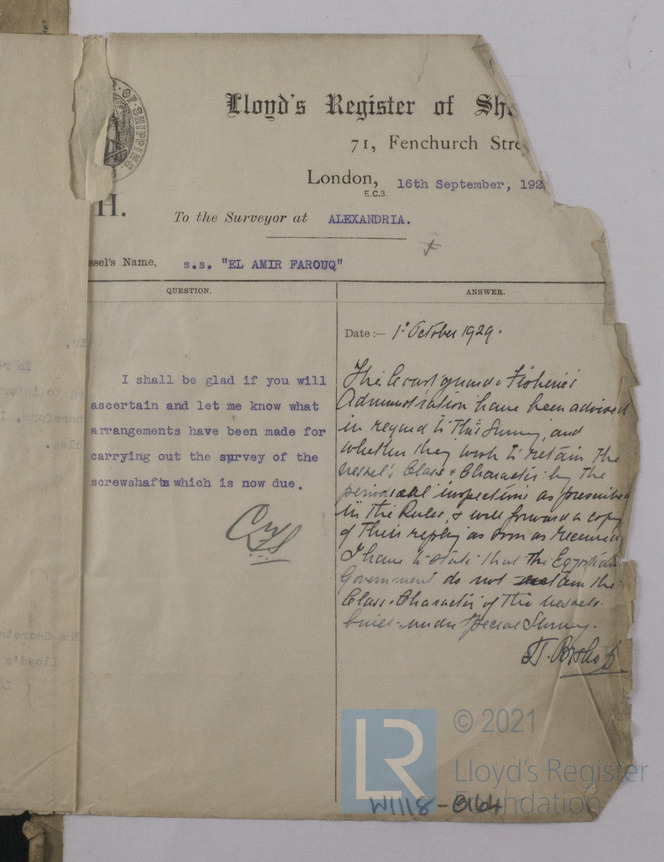 Lloyd's Register of Sh
71, Fenchurch Stre
London,
E.C.3.
16th September, 192
H.
To the Surveyor at ALEXANDRIA.
ssel's Name, s.s. "EL AMIR FAROUQ"
QUESTION.
I shall be glad if you will
ascertain and let me know what
arrangements have been made for
carrying out the survey of the
screwshafts which is now due.
ANSWER.
Date:— 1st October 1929.
The Coastguard & Fisheries
Administration have been advised
in regard to this Survey, and
whether they wish to retain the
vessel's Class & Character by the
periodical inspections as prescribed
in the Rules, & will forward a copy
of their reply as soon as received
I have to state that the Egyptian
Government do not retain the
Class & Character of the vessels
built under special Survey.
© 2021
Lloyd's Register
Foundation
W1118-0164